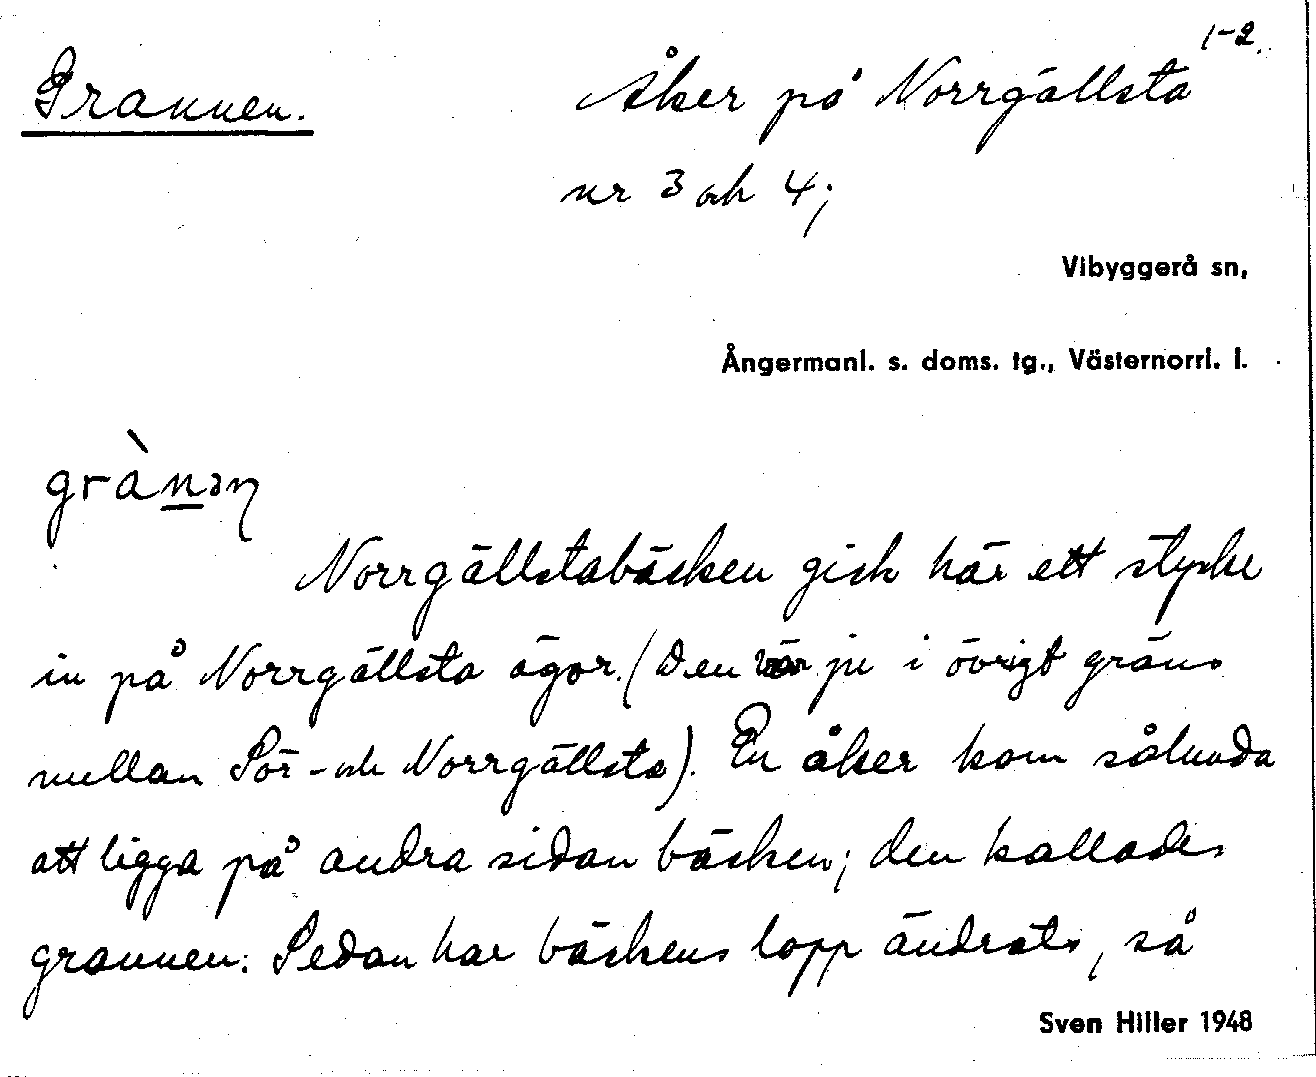 1-2.
Grannen.
Åker på Norrgällsta
nr 3 och 4;
Vibyggerå sn,
Ångermanl. s. doms. tg., Västernorrl. l.
grànən
Norrgällstabäcken gick här ett stycke
in på Norrgällsta ägor. (Den var ju i övrigt gräns
mellan Sör- och Norrgällsta). En åker kom sålunda
att ligga på andra sidan bäcken; den kallades
grannen. Sedan har bäckens lopp ändrats, så
Sven Hiller 1948